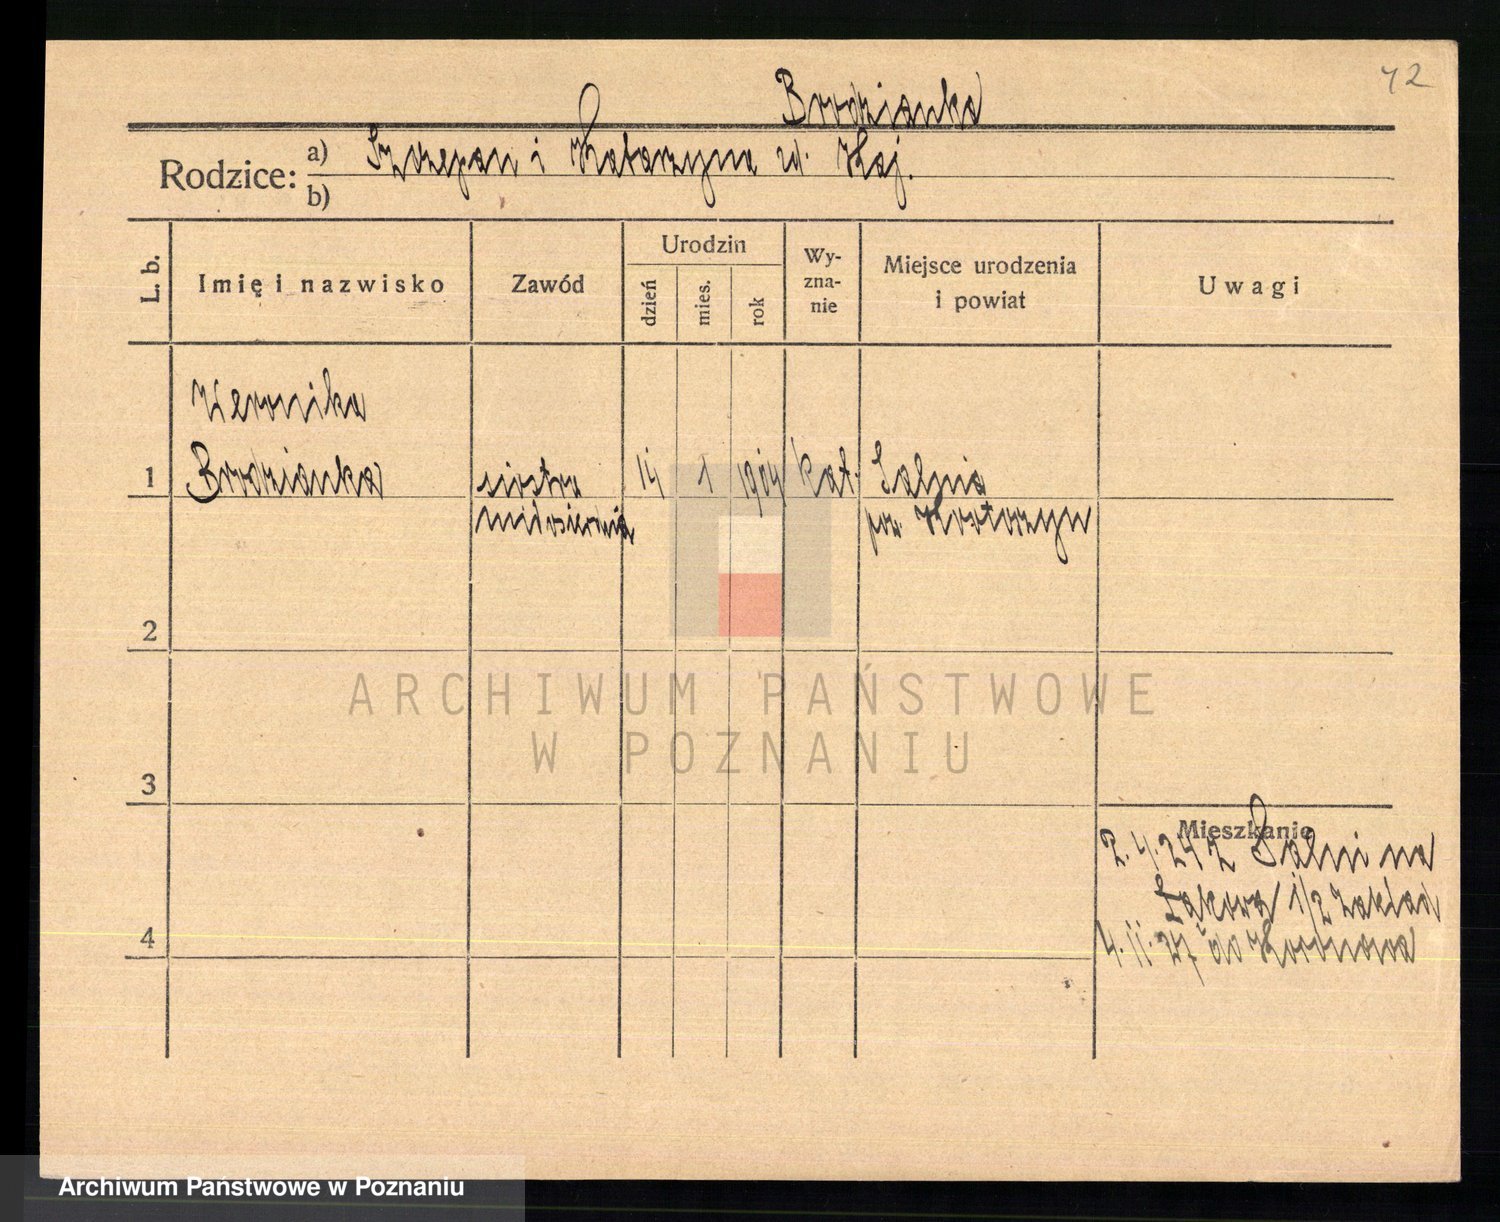 42
Brodzianka
Rodzice: a) Szczepan i Katarzyna zd. Haj.
b)
L. b.
Imię i nazwisko
Zawód
Urodzin
dzień
mies.
rok
Wy-
zna-
nie
Miejsce urodzenia
i powiat
Uwagi
Weronika
1 Brodzianka siostra 14 1 1904 kat. Salnia
miłosierdzia pow. Krotoszyn
2
3
Mieszkanie
2.4.24 z Salni na
zakład
4
4.11.27 do
ARCHIWUM PAŃSTWOWE
W POZNANIU
Archiwum Państwowe w Poznaniu